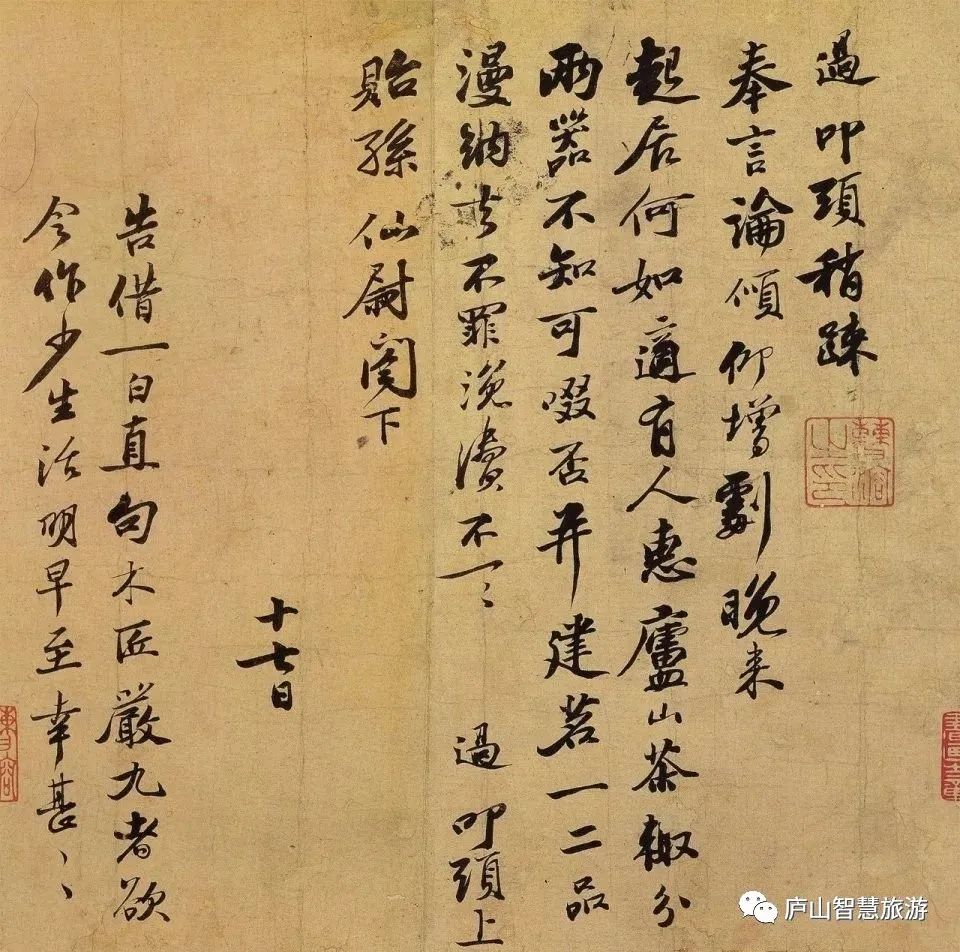 過叩頭稍疎
奉言論傾仰增劇晚来
起居何如適有人惠廬山茶輙分
兩器不知可啜否并建茗一二品
漫納去不罪浼瀆不一〻
過叩頭上
貽孫仙尉閤下
十七日
告借一白直句木匠嚴九者欲
令作少生活明早至幸甚〻
庐山智慧旅游